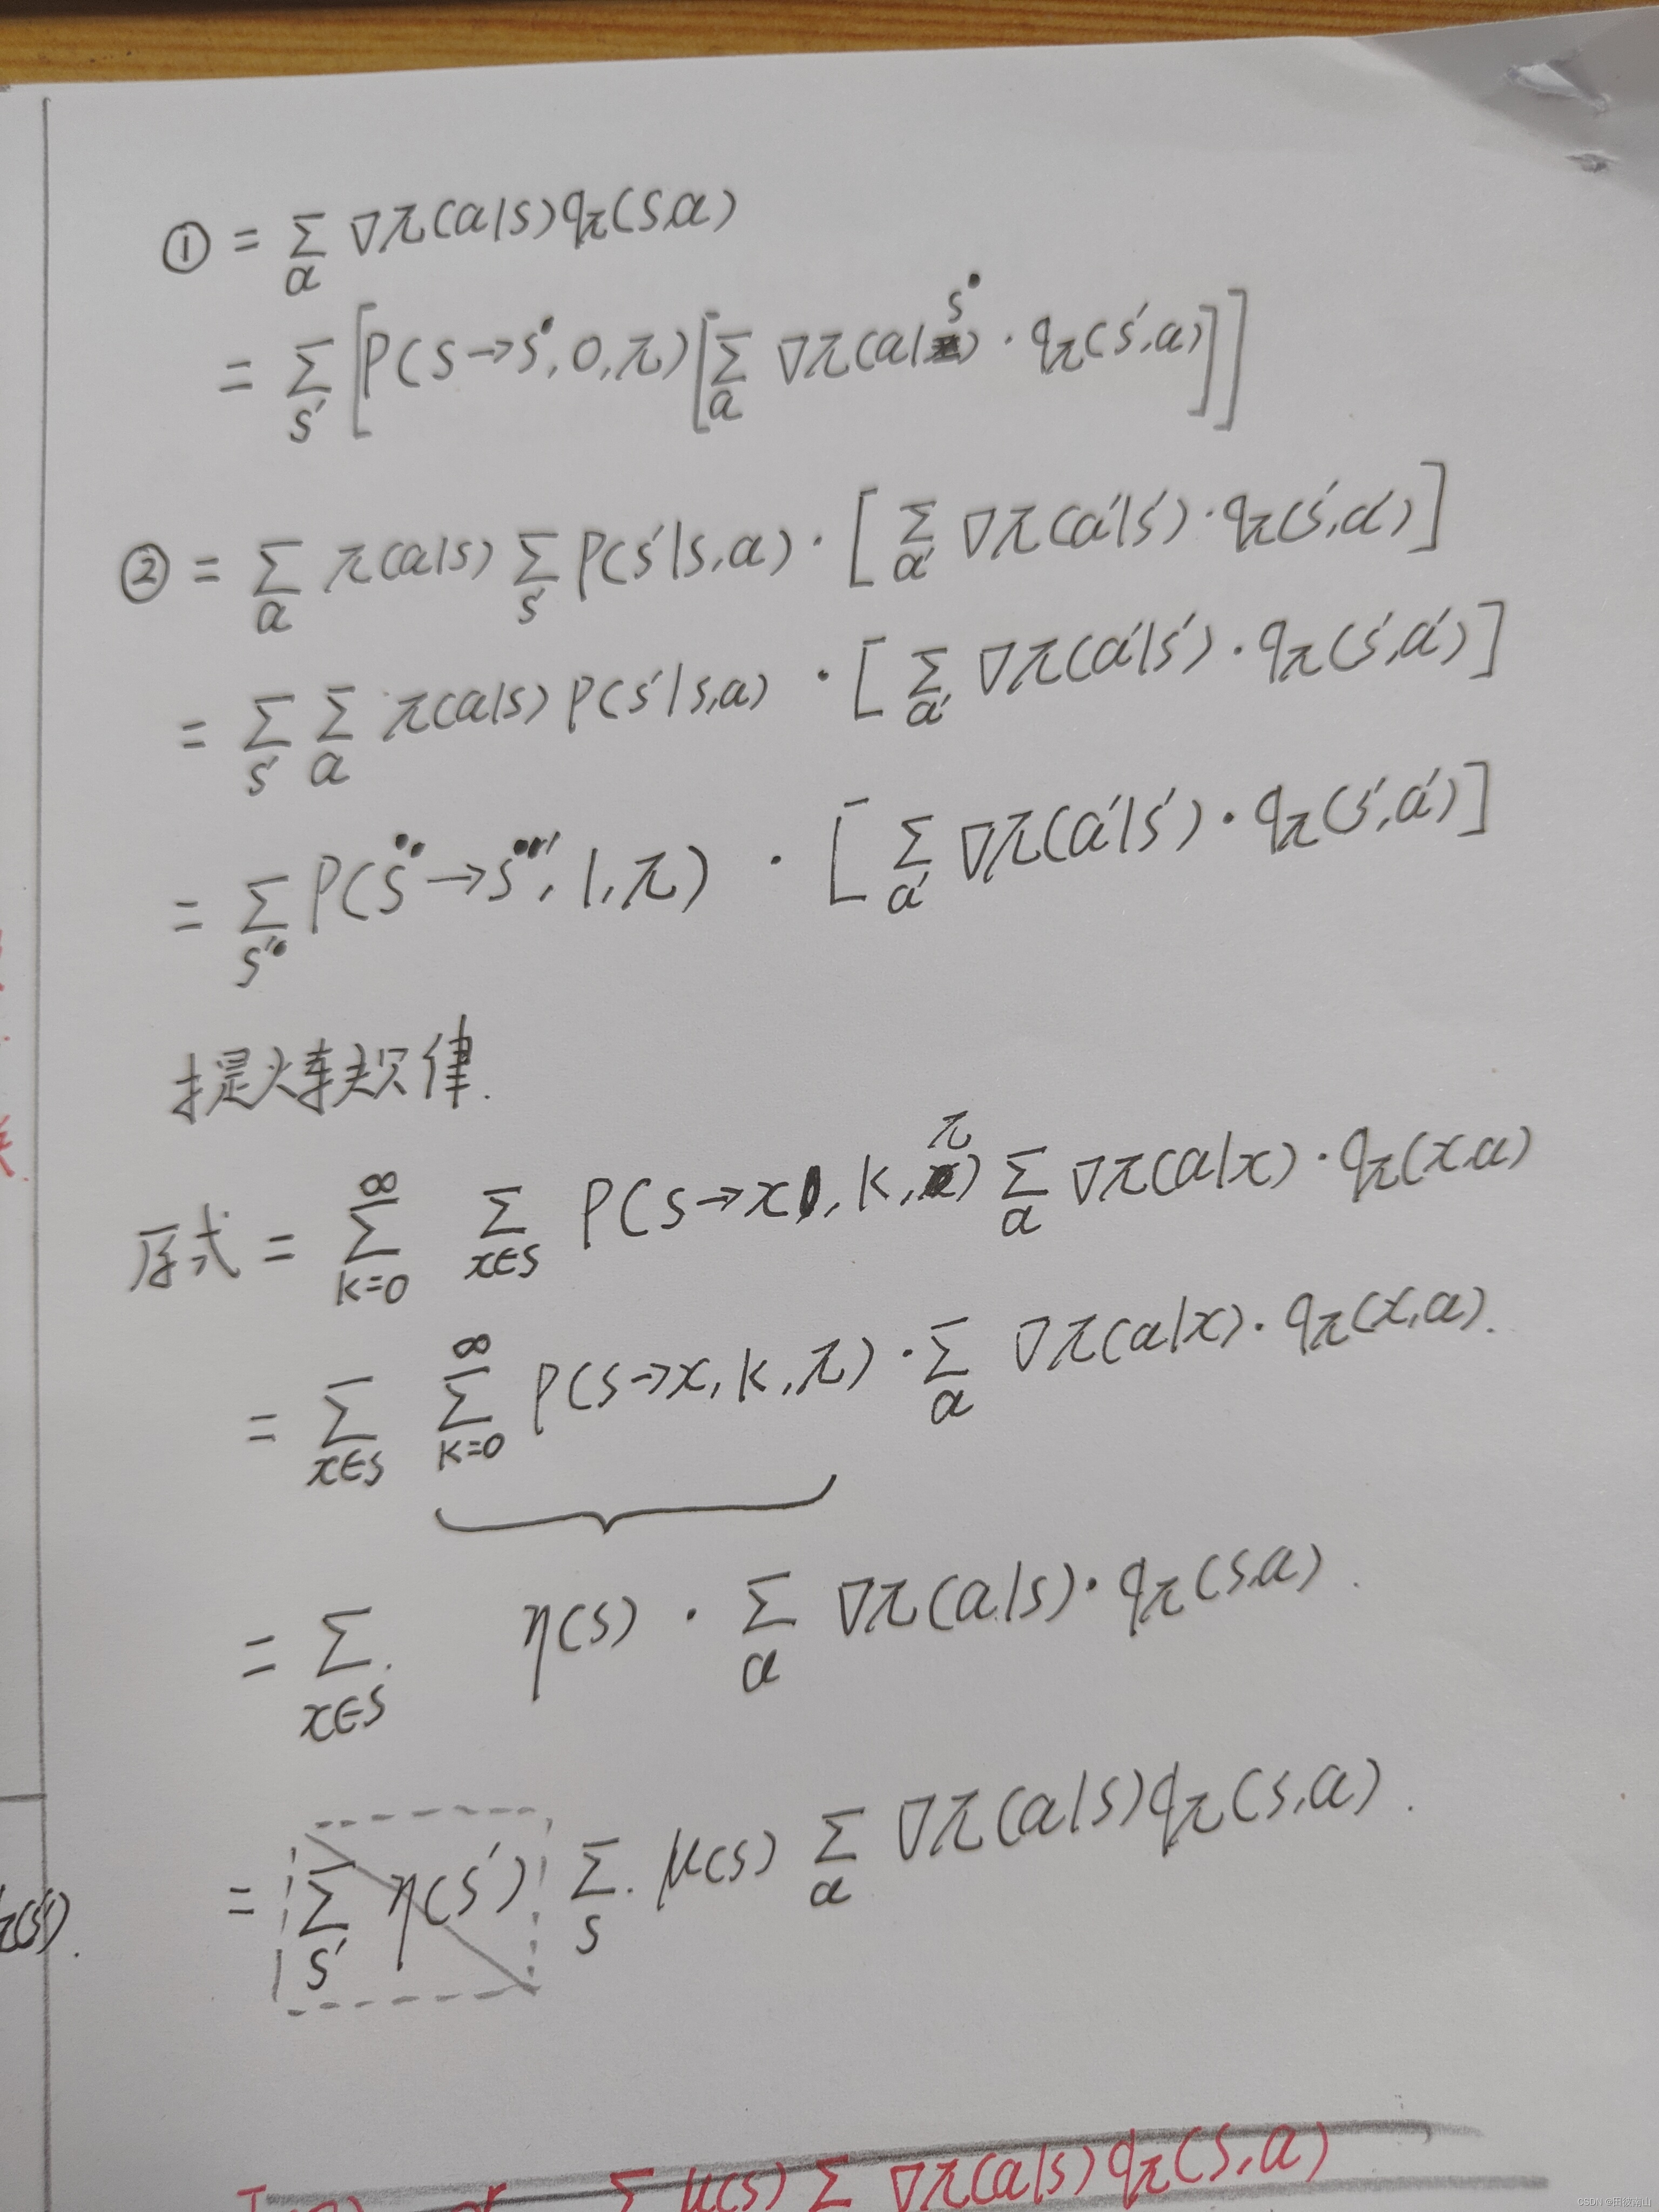 ① = Σ_a ∇π(a|s)q_π(s,a)
= Σ_s' [P(s→s',0,π)[Σ_a ∇π(a|s')·q_π(s',a)]]
② = Σ_a π(a|s) Σ_s' P(s'|s,a)·[Σ_a' ∇π(a'|s')·q_π(s',a')]
= Σ_s' Σ_a π(a|s) P(s'|s,a)·[Σ_a' ∇π(a'|s')·q_π(s',a')]
= Σ_s' P(s→s',1,π)·[Σ_a' ∇π(a'|s')·q_π(s',a')]
规律.
原式 = Σ_{k=0}^∞ Σ_{x∈S} P(s→x,k,π) Σ_a ∇π(a|x)·q_π(x,a)
= Σ_{x∈S} Σ_{k=0}^∞ P(s→x,k,π)·Σ_a ∇π(a|x)·q_π(x,a).
= Σ_{x∈S} η(s)·Σ_a ∇π(a|s)·q_π(s,a).
= Σ_s' η(s') Σ_s μ(s) Σ_a ∇π(a|s)q_π(s,a).
Σ μ(s) Σ ∇π(a|s)q_π(s,a)